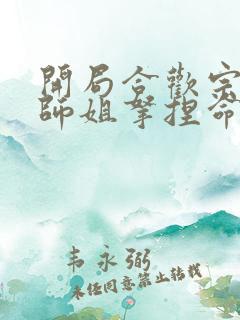 開局合歡宗
師姐拿捏命
韦永弼
未任同意禁止转载